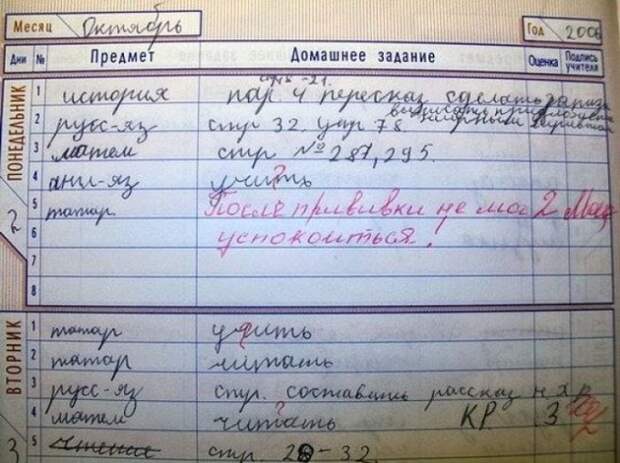 Месяц Октябрь Год 2006
Дни № Предмет Домашнее задание Оценка Подпись учителя
ПОНЕДЕЛЬНИК
2
стр -21.
1 история пар. 4 пересказ сделать
выписать
2 русс-яз стр 32. упр 78
3 матем стр № 287, 295.
4 анг-яз учить ?
5 татар После прививки не мог 2
6 успокоиться!
7
8
ВТОРНИК
3
1 татар учить
2 татар читать
3 русс-яз стр. составить рассказ
?
4 матем читать КР. 3
5 чтение стр. 28-32